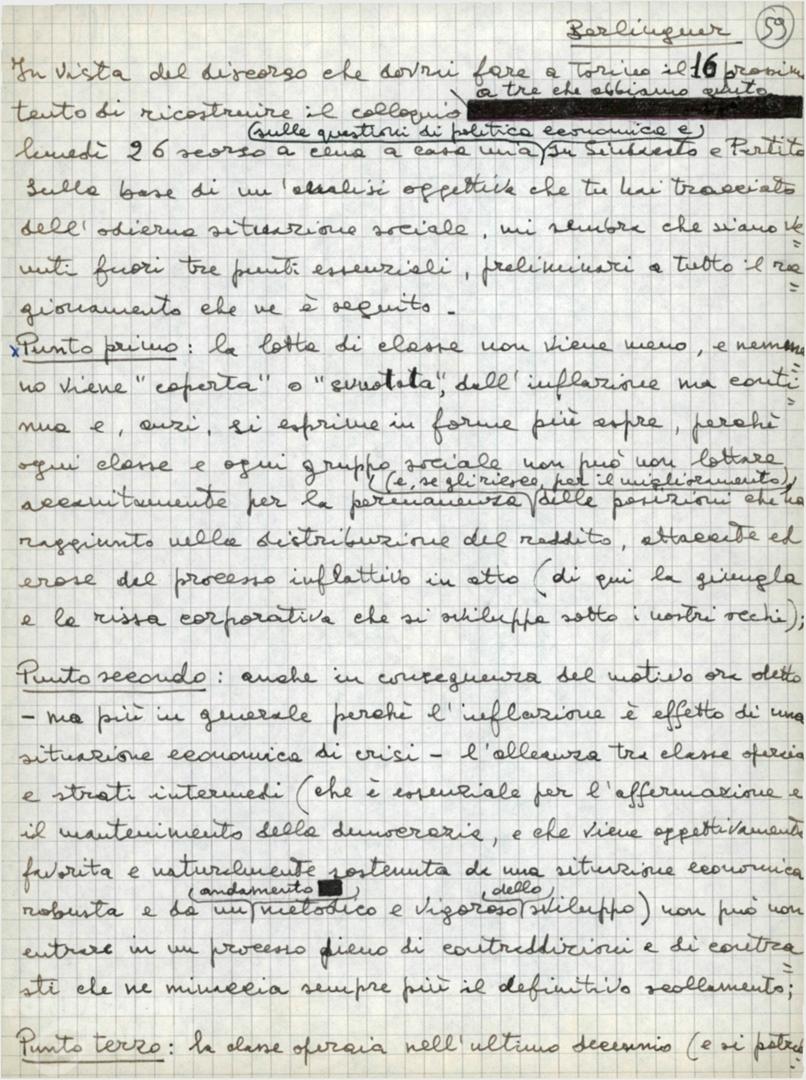 Berlinguer 59
In vista del discorso che dovrai fare a Torino il 16 prossimo
a tre che abbiamo avuto
tento di ricostruire il colloquio
(sulle questioni di politica economica e)
lunedì 26 scorso a cena a casa mia su Sindacato e Partito
Sulla base di un'analisi oggettiva che tu hai tracciato
dell'odierna situazione sociale, mi sembra che siano ve=
nuti fuori tre punti essenziali, preliminari a tutto il ra=
gionamento che ne è seguito.
x Punto primo: la lotta di classe non viene meno, e nemme=
no viene "coperta" o "svuotata", dall'inflazione ma conti=
nua e, anzi, si esprime in forme più aspre, perchè
ogni classe e ogni gruppo sociale non può non lottare
(e, se gli riesce, per il miglioramento)
accanitamente per la permanenza delle posizioni che ha
raggiunto nella distribuzione del reddito, attaccate ed
erose dal processo inflattivo in atto (di qui la giungla
e la rissa corporativa che si sviluppa sotto i nostri occhi);
Punto secondo: anche in conseguenza del motivo ora detto
- ma più in generale perchè l'inflazione è effetto di una
situazione economica di crisi - l'alleanza tra classe operaia
e strati intermedi (che è essenziale per l'affermazione e
il mantenimento della democrazia, e che viene oggettivamente
favorita e naturalmente sostenuta da una situazione economica
(andamento) (dello)
robusta e da un metodico e vigoroso sviluppo) non può non
entrare in un processo pieno di contraddizioni e di contra=
sti che ne minaccia sempre più il definitivo scollamento;
Punto terzo: la classe operaia nell'ultimo decennio (e si